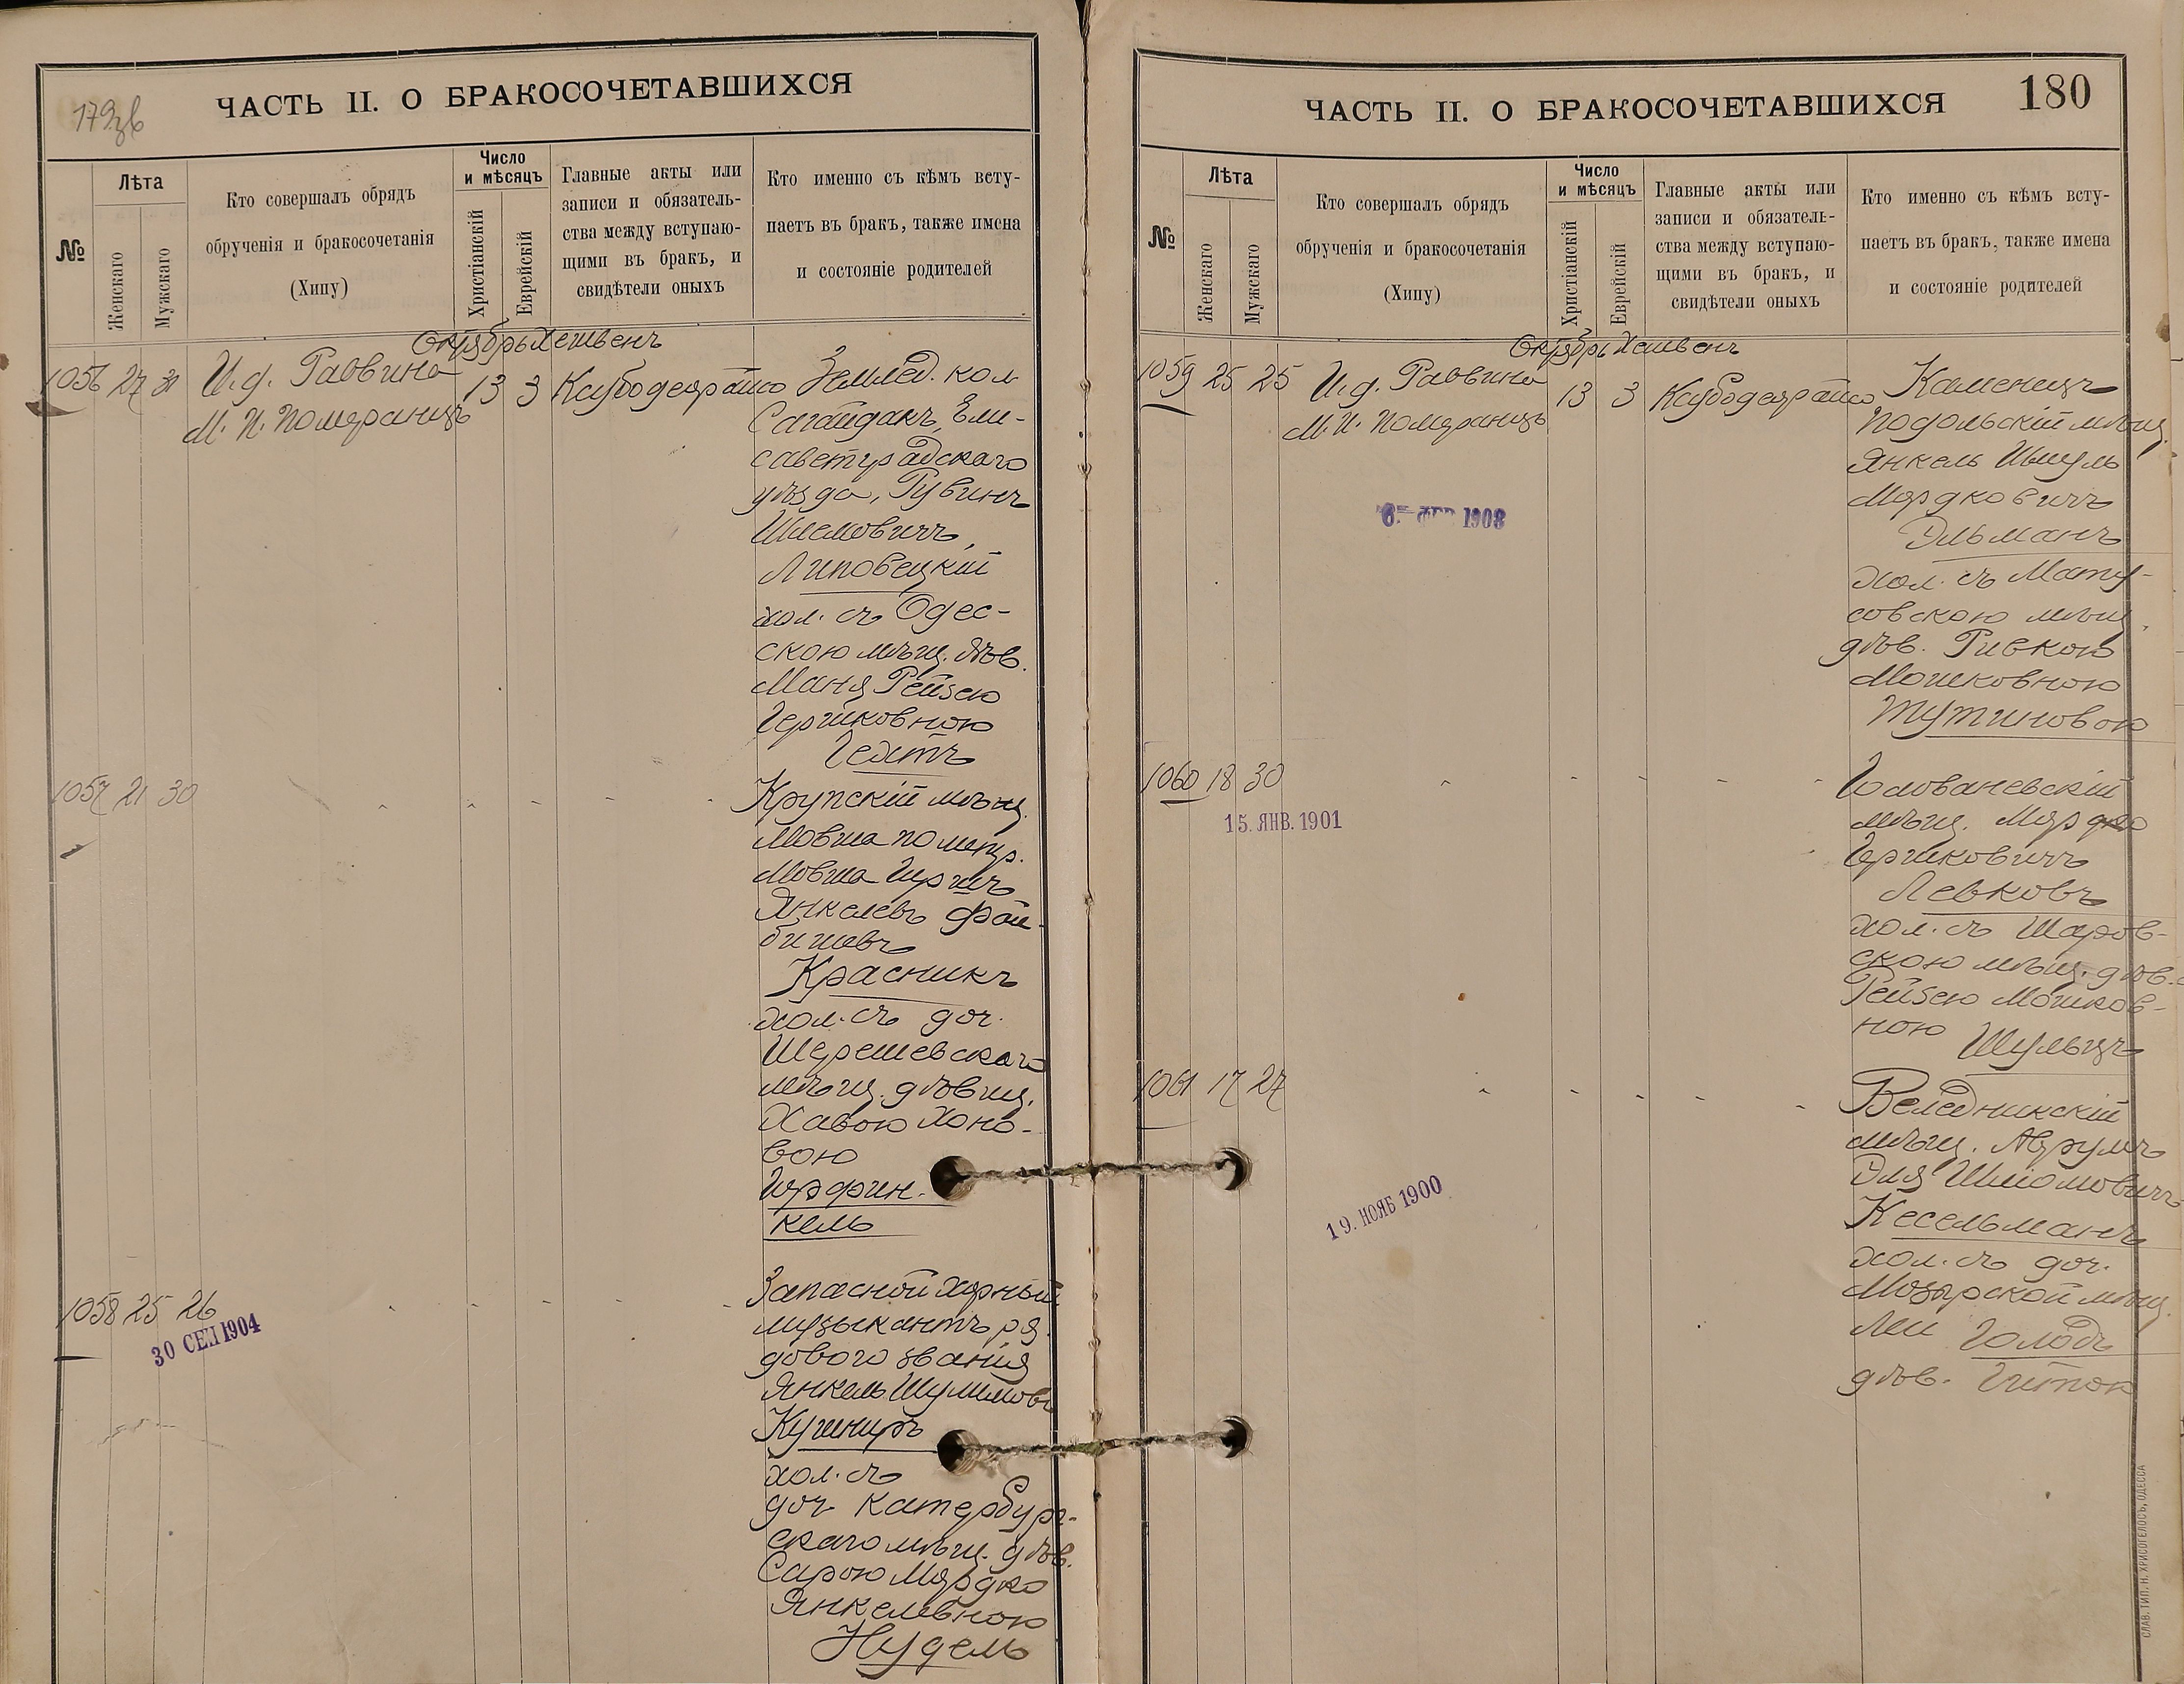 179об
ЧАСТЬ II. О БРАКОСОЧЕТАВШИХСЯ
№
Лѣта
Женскаго
Мужскаго
Кто совершалъ обрядъ
обрученія и бракосочетанія
(Хипу)
Число
и мѣсяцъ
Христіанскій
Еврейскій
Главные акты или
записи и обязатель-
ства между вступаю-
щими въ бракъ, и
свидѣтели оныхъ
Кто именно съ кѣмъ всту-
паетъ въ бракъ, также имена
и состояніе родителей
Октябрь Хешвенъ
1056 27 30 И.д. Раввина 13 3 Ксубодеарайсо
М. И. Померанцъ
Землед. кол.
Сагайдакъ, Ели-
саветградскаго
уѣзда, Рувинъ
Шлемовичъ
Липовецкій
хол. съ Одес-
скою мѣщ. дѣв.
Маня Рейзею
Гершковною
Гехтъ
1057 21 30
Крупскій мѣщ.
Мовша по метр.
Мовша Гершъ
Янкелевъ Фай-
бишевъ
Красникъ
хол. съ доч.
Шерешевскаго
мѣщ. дѣвиц.
Хавою Хоно-
вою
Герфин-
кель
1058 25 26
30 СЕП 1904
Запасной хорный
музыкантъ ря-
дового званія
Янкель Шулимовъ
Кушниръ
хол. съ
доч Катербург-
скаго мѣщ. дѣв.
Сарою Мордко
Янкелевною
Нудель
ЧАСТЬ II. О БРАКОСОЧЕТАВШИХСЯ
180
№
Лѣта
Женскаго
Мужскаго
Кто совершалъ обрядъ
обрученія и бракосочетанія
(Хипу)
Число
и мѣсяцъ
Христіанскій
Еврейскій
Главные акты или
записи и обязатель-
ства между вступаю-
щими въ бракъ, и
свидѣтели оныхъ
Кто именно съ кѣмъ всту-
паетъ въ бракъ, также имена
и состояніе родителей
Октябрь Хешвенъ
1059 25 25 И.д. Раввина 13 3 Ксубодеарайсо
М. И. Померанцъ
6 ФЕВ 1908
Каменецъ
Подольскій мѣщ.
Янкель Шмуль
Мордковичъ
Эльманъ
хол. съ Мату-
совскою мѣщ.
дѣв. Ривкою
Мошковною
Тутиновою
1060 18 30
15. ЯНВ. 1901
Голованевскій
мѣщ. Мордко
Гершковичъ
Левковъ
хол. съ Шаров-
скою мѣщ. дѣв.
Рейзею Мошков-
ною Шульцъ
1061 17 27
19. НОЯБ 1900
Веледникскій
мѣщ. Аврумъ
Эля Шліомовичъ
Кесельманъ
хол. съ доч.
Мозырской мѣщ.
Леи Голодъ
дѣв. Гитою
СЛАВ. ТИП. Н. ХРИСОГЕЛОСЪ, ОДЕССА